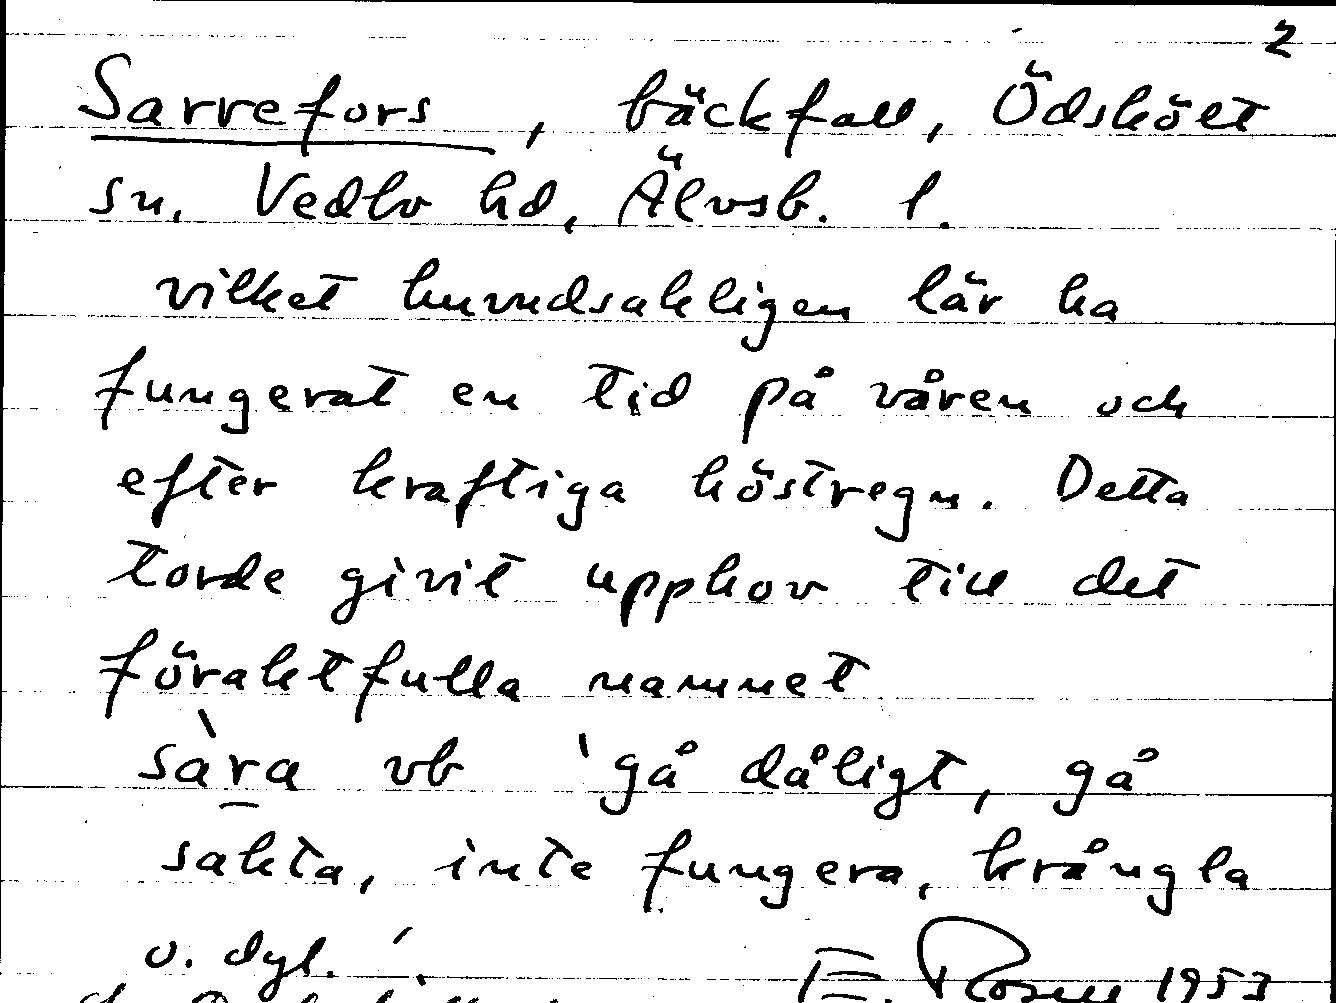 2
Sarrefors, bäckfall, Ödskölt
sn. Vedbo hd, Älvsb. l.
vilket huvudsakligen lär ha
fungerat en tid på våren och
efter kraftiga höstregn. Detta
torde givit upphov till det
föraktfulla namnet
sàr̲a vb 'gå dåligt, gå
sakta, inte fungera, krångla
o. dyl.'. E. Rosell 1953